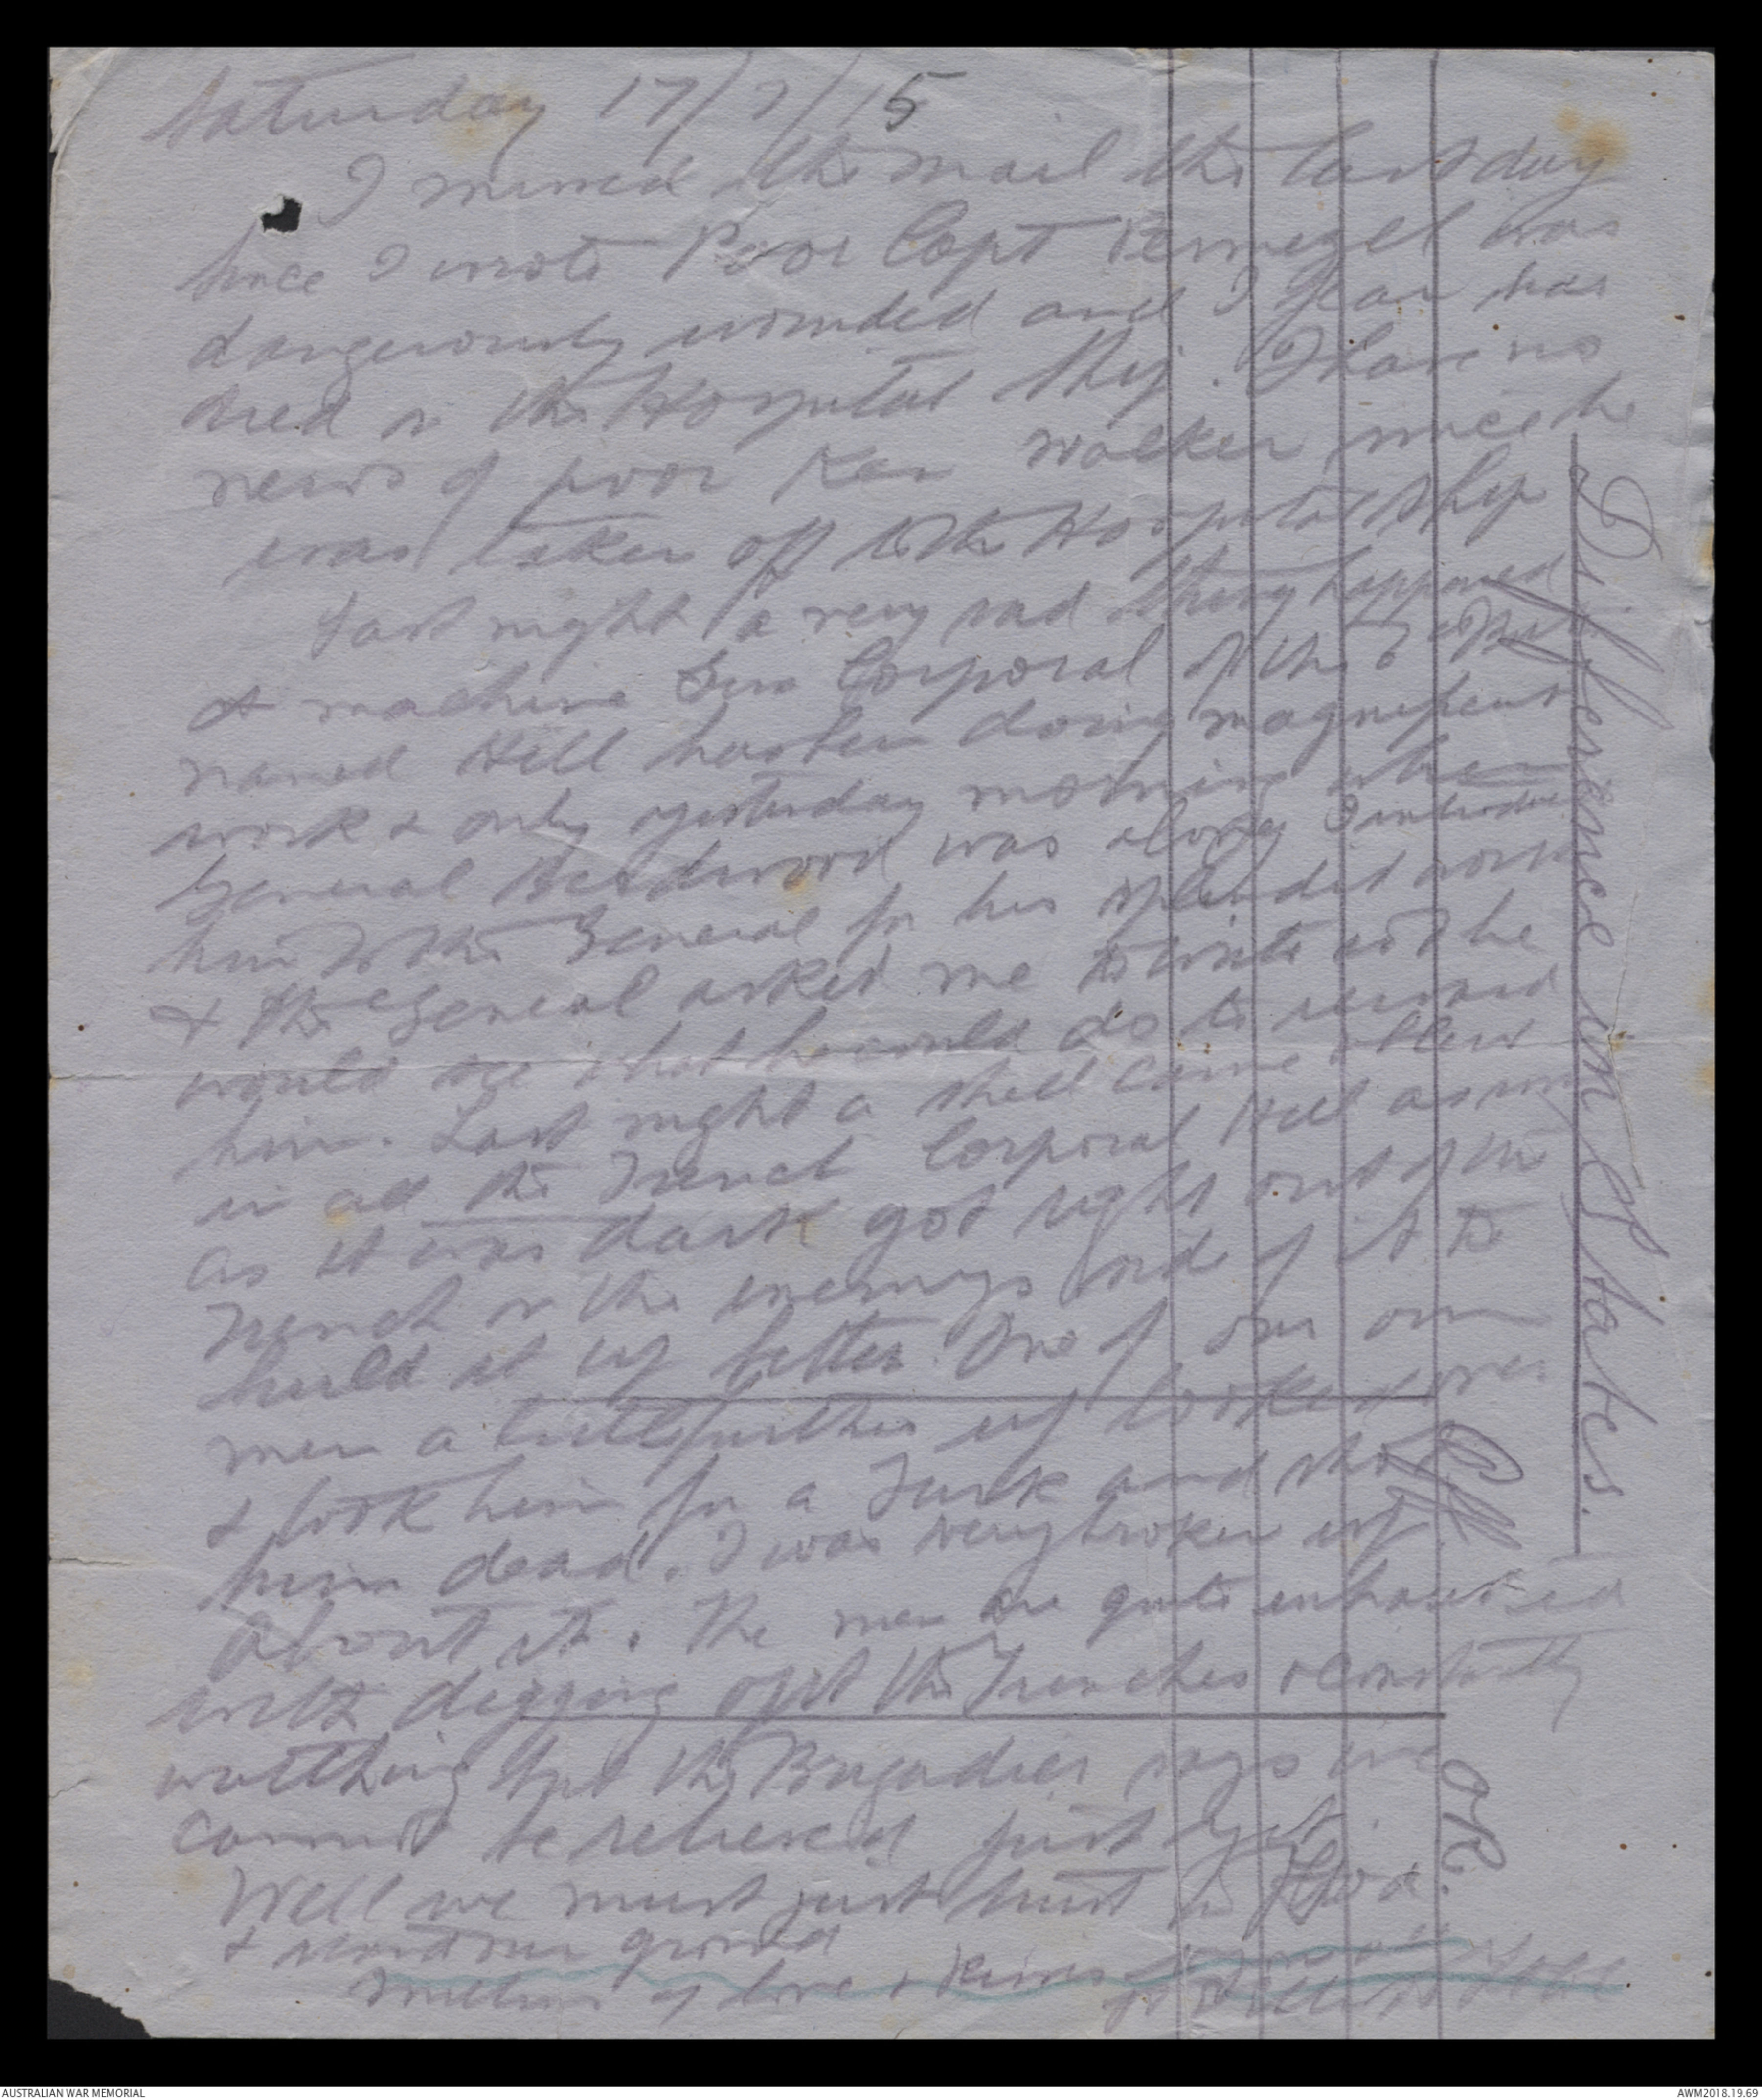 Saturday 17/7/15
I missed the mail the last day
since I wrote Poor Capt was
dangerously wounded and I fear has
died on the Hospital Ship. I have no
news of poor Ken Walker since he
was taken off to the Hospital Ship
Last night a very sad thing happened
A machine Gun Corporal of the
named Hill has been doing magnificent
work & only yesterday morning when
General Birdwood was along I introduced
him to the General for his splendid work
& the General asked me to write and he
would see what he could do to reward
him. Last night a shell came & blew
in all the Trench Corporal Hill
as it was dark got right out of the
Trench on the enemys side of it to
build it up better. One of our own
men a little further up looked over
& took him for a Turk and shot
him dead. I was very broken up
about it. The men are quite exhausted
with digging out the Trenches & constantly
watching but the Brigadier says we
cannot be relieved just yet.
Well we must just trust in God.
& stand our ground
Millions of love & kisses
Difference in States.
Off
O.R.
AUSTRALIAN WAR MEMORIAL
AWM2018.19.69